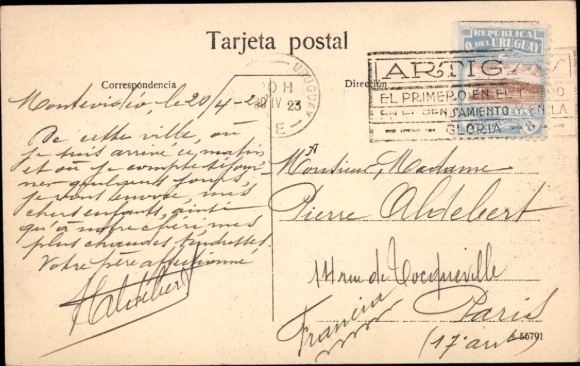 Tarjeta postal
Correspondencia
Dirección
REPUBLICA
O. DEL URUGUAY
URUGUAY
20 IV 23
E
ARTIGAS
EL PRIMERO EN EL
EN EL PENSAMIENTO EN LA
GLORIA
Montevidéo, le 20/4-23
De cette ville, où
je suis arrivé ce matin
et où je compte séjour
ner quelques jours,
je vous envoie, mes
chers enfants, ainsi
qu'à notre chère, mes
plus chaudes tendresses.
Votre père affectionné
HAldebert
Monsieur, Madame
Pierre Aldebert
14 rue de Tocqueville
Paris
Francia
(17 arrt)
56791